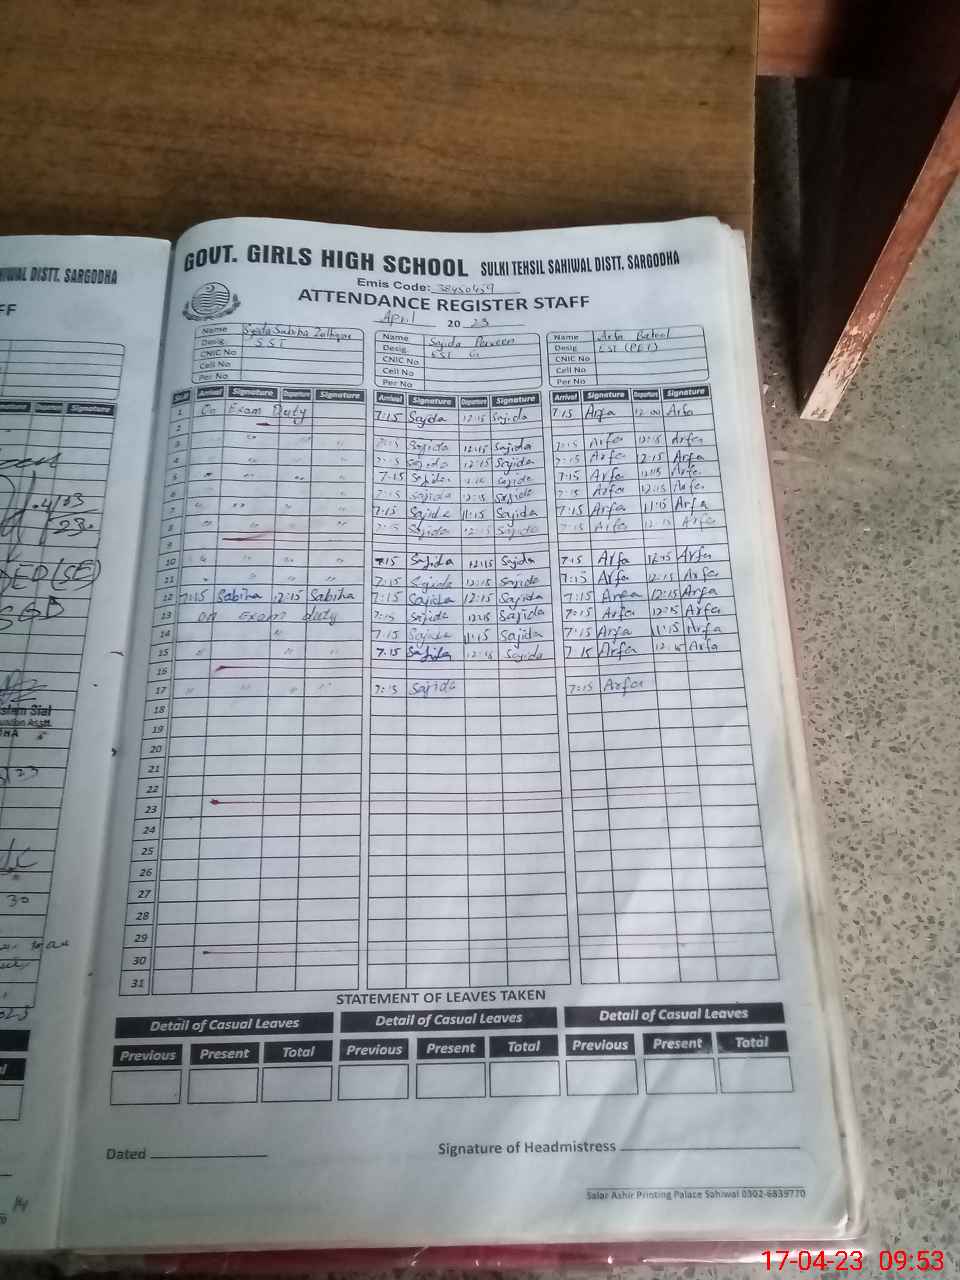 HIWAL DISTT. SARGODHA
GOVT. GIRLS HIGH SCHOOL SULKI TEHSIL SAHIWAL DISTT. SARGODHA
Emis Code: 38450459
ATTENDANCE REGISTER STAFF
April 20 23
Name Name Sajida Parveen Name Arfa Batool
Desig. SST Desig. EST G Desig. EST (PET)
CNIC No CNIC No CNIC No
Cell No Cell No Cell No
Per No Per No Per No
Arrival Signature Departure Signature Arrival Signature Departure Signature Arrival Signature Departure Signature
1 On Exam Duty 7:15 Sajida 12:15 Sajida 7:15 Arfa 12:00 Arfa
2
3 " " 7:15 Sajida 12:15 Sajida 7:15 Arfa 12:15 Arfa
4 " " 7:15 Sajida 12:15 Sajida 7:15 Arfa 12:15 Arfa
5 " " " 7:15 Sajida 12:15 Sajida 7:15 Arfa 12:15 Arfa
6 " " " 7:15 Sajida 12:15 Sajida 7:15 Arfa 12:15 Arfa
7 " " " " 7:15 Sajida 11:15 Sajida 7:15 Arfa 11:15 Arfa
8 " " " " 7:15 Sajida 12:15 Sajida 7:15 Arfa 12:15 Arfa
9
10 " " " " 7:15 Sajida 12:15 Sajida 7:15 Arfa 12:15 Arfa
11 " " " " 7:15 Sajida 12:15 Sajida 7:15 Arfa 12:15 Arfa
12 7:15 Sabiha 12:15 Sabiha 7:15 Sajida 12:15 Sajida 7:15 Arfa 12:15 Arfa
13 on Exam duty 7:15 Sajida 12:15 Sajida 7:15 Arfa 12:15 Arfa
14 " 7:15 Sajida 11:15 Sajida 7:15 Arfa 11:15 Arfa
15 " " " 7:15 Sajida 12:15 Sajida 7:15 Arfa 12:15 Arfa
16
17 " " " " 7:15 Sajida 7:15 Arfa
18
19
20
21
22
23
24
25
26
27
28
29
30
31
STATEMENT OF LEAVES TAKEN
Detail of Casual Leaves Detail of Casual Leaves Detail of Casual Leaves
Previous Present Total Previous Present Total Previous Present Total
Dated Signature of Headmistress
Salar Ashir Printing Palace Sahiwal 0302-6839770
17-04-23 09:53